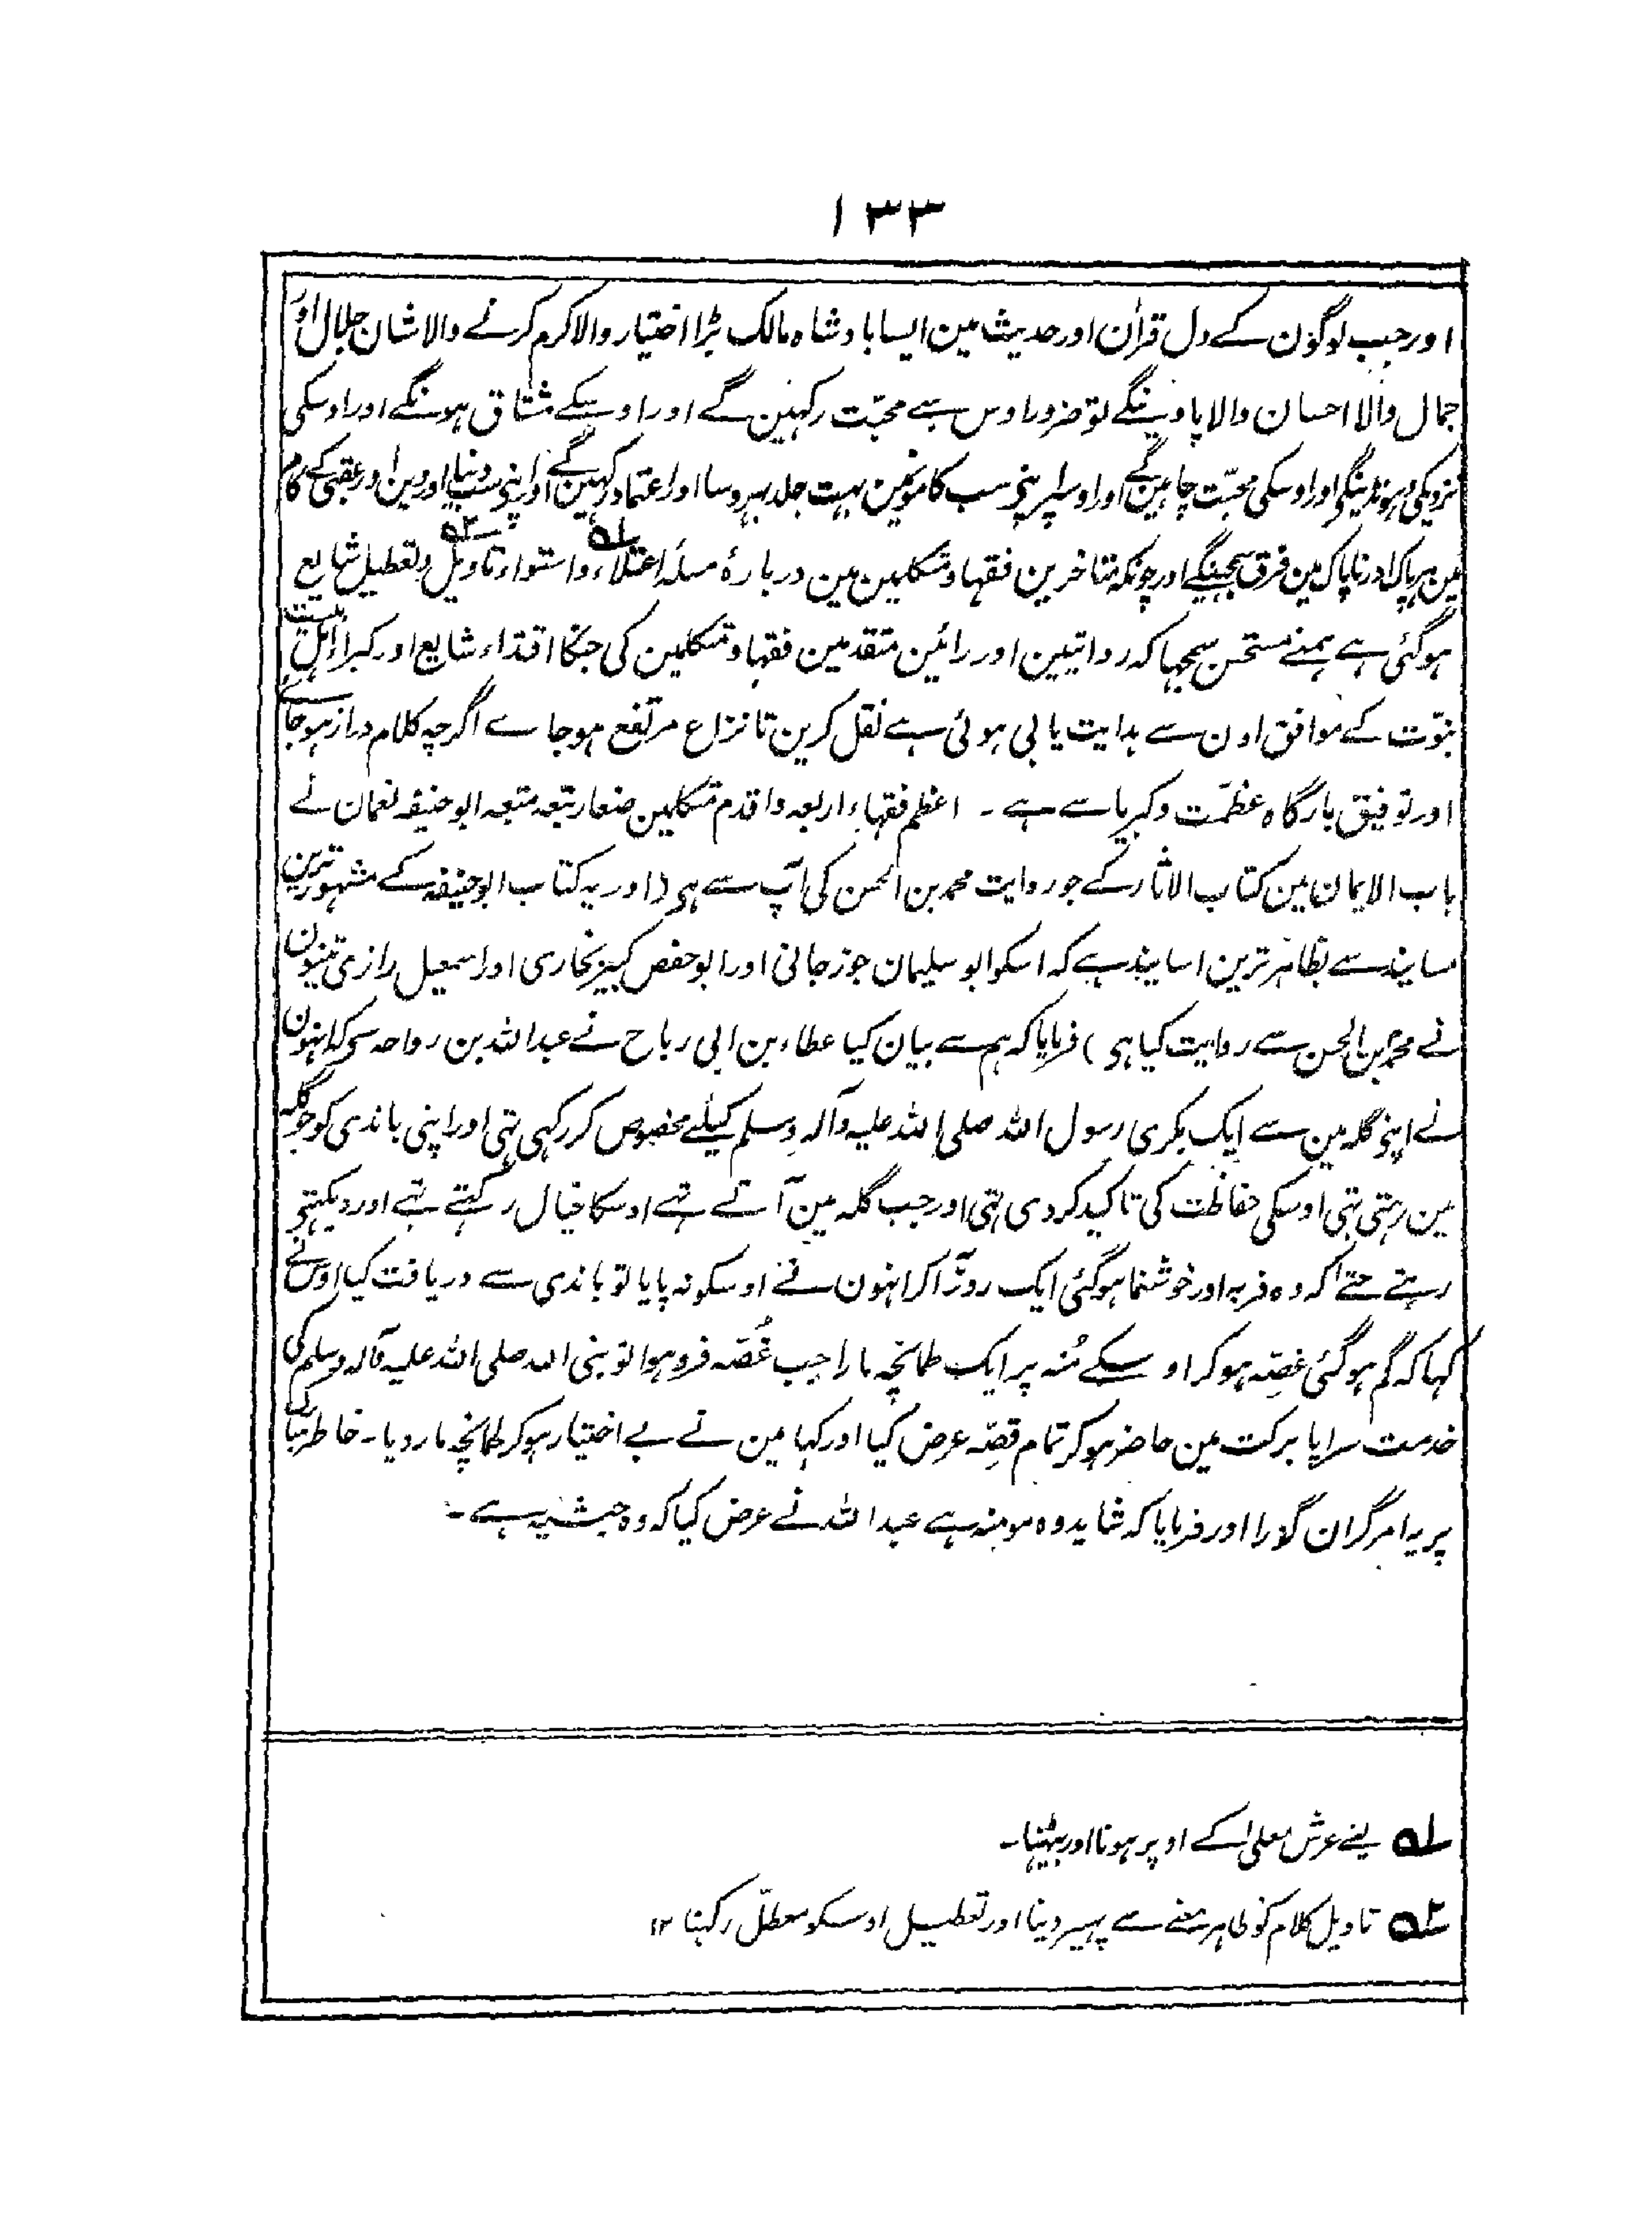 ۱۳۳
اور جب لوگون کے دل قراٰن اور حدیث مین ایسا بادشاہ مالک بڑا اختیار والا کرم کرنے والا شان جلال اور
جمال والا احسان والا پاوینگے تو ضرور اوس سے محبّت رکہین گے اور اوسکے مشتاق ہونگے اور اوسکی
نزدیکی ڈہونڈینگی اور اوسکی محبّت چاہین گے اور اوسپر اپنی سب کامونمین بہت جلد بہروسا اور اعتماد رکہین گے اور اپنی سب دنیا اور دین اور عقبی کے کام
مین ہر پاک اور ناپاک مین فرق سمجہینگے اور چونکہ متاخرین فقہا و متکلمین مین دربارۂ مسئلہ اعتلاء و استواء تاویل و تعطیل شایع
ہوگئی ہے ہمنے مستحسن سمجہا کہ روایتین اور رائین متقدمین فقہا و متکلمین کی جنکا اقتداء شایع اور کبراء اہل بیت
نبوّت کے موافق اون سے ہدایت یابی ہوئی ہے نقل کرین تا نزاع مرتفع ہوجاے اگرچہ کلام دراز ہوجاے
اور توفیق بارگاہ عظمّت و کبریا سے ہے ۔ اعظم فقہاء اربعہ و اقدم متکلمین ابو حنیفہ نعمان نے
باب الایمان مین کتاب الاثار کے جو روایت محمد بن الحسن کی آپ سے ہی (اور یہ کتاب ابو حنیفہ کے مشہور ترین
مسانید سے بظاہر ترین اسانید ہے کہ اسکو ابو سلیمان جوزجانی اور ابو حفص کبیر بخاری اور اسمعیل رازی تینون
نے محمد بن الحسن سے روایت کیا ہی ) فرمایا کہ ہم سے بیان کیا عطاء بن ابی رباح نے عبد اللہ بن رواحہ سی کہ انہون
نے اپنی گلہ مین سے ایک بکری رسول اللہ صلی اللہ علیہ وآلہ وسلم کیلئے مخصوص کر رکہی تہی اور اپنی باندی کو جو گلہ
مین رہتی تہی اوسکی حفاظت کی تاکید کر دی تہی اور جب گلہ مین آتے تہے اوسکا خیال رکہتے تہے اور دیکہتی
رہتے حتے اکہ وہ فربہ اور خوشنما ہوگئی ایک روز آکر انہون نے اوسکو نہ پایا تو باندی سے دریافت کیا اوس نے
کہا کہ گم ہوگئی غصّہ ہو کر اوسکے مُنہ پر ایک طمانچہ مارا جب غُصّہ فرو ہوا تو نبی اللہ صلی اللہ علیہ وآلہ وسلم کی
خدمت سراپا برکت مین حاضر ہوکر تمام قصّہ عرض کیا اور کہا مین نے بے اختیار ہوکر طمانچہ مار دیا ۔ خاطر
پر یہ امر گران گزرا اور فرمایا کہ شاید وہ مومنہ ہے عبد اللہ نے عرض کیا کہ وہ حبشیہ ہے ۔
۱ یعنے عرش معلی کے اوپر ہونا اور بیٹہنا ۔
۲ تاویل کلام کو ظاہر معنے سے پہیر دینا اور تعطیل اوسکو معطّل رکہنا ۱۲